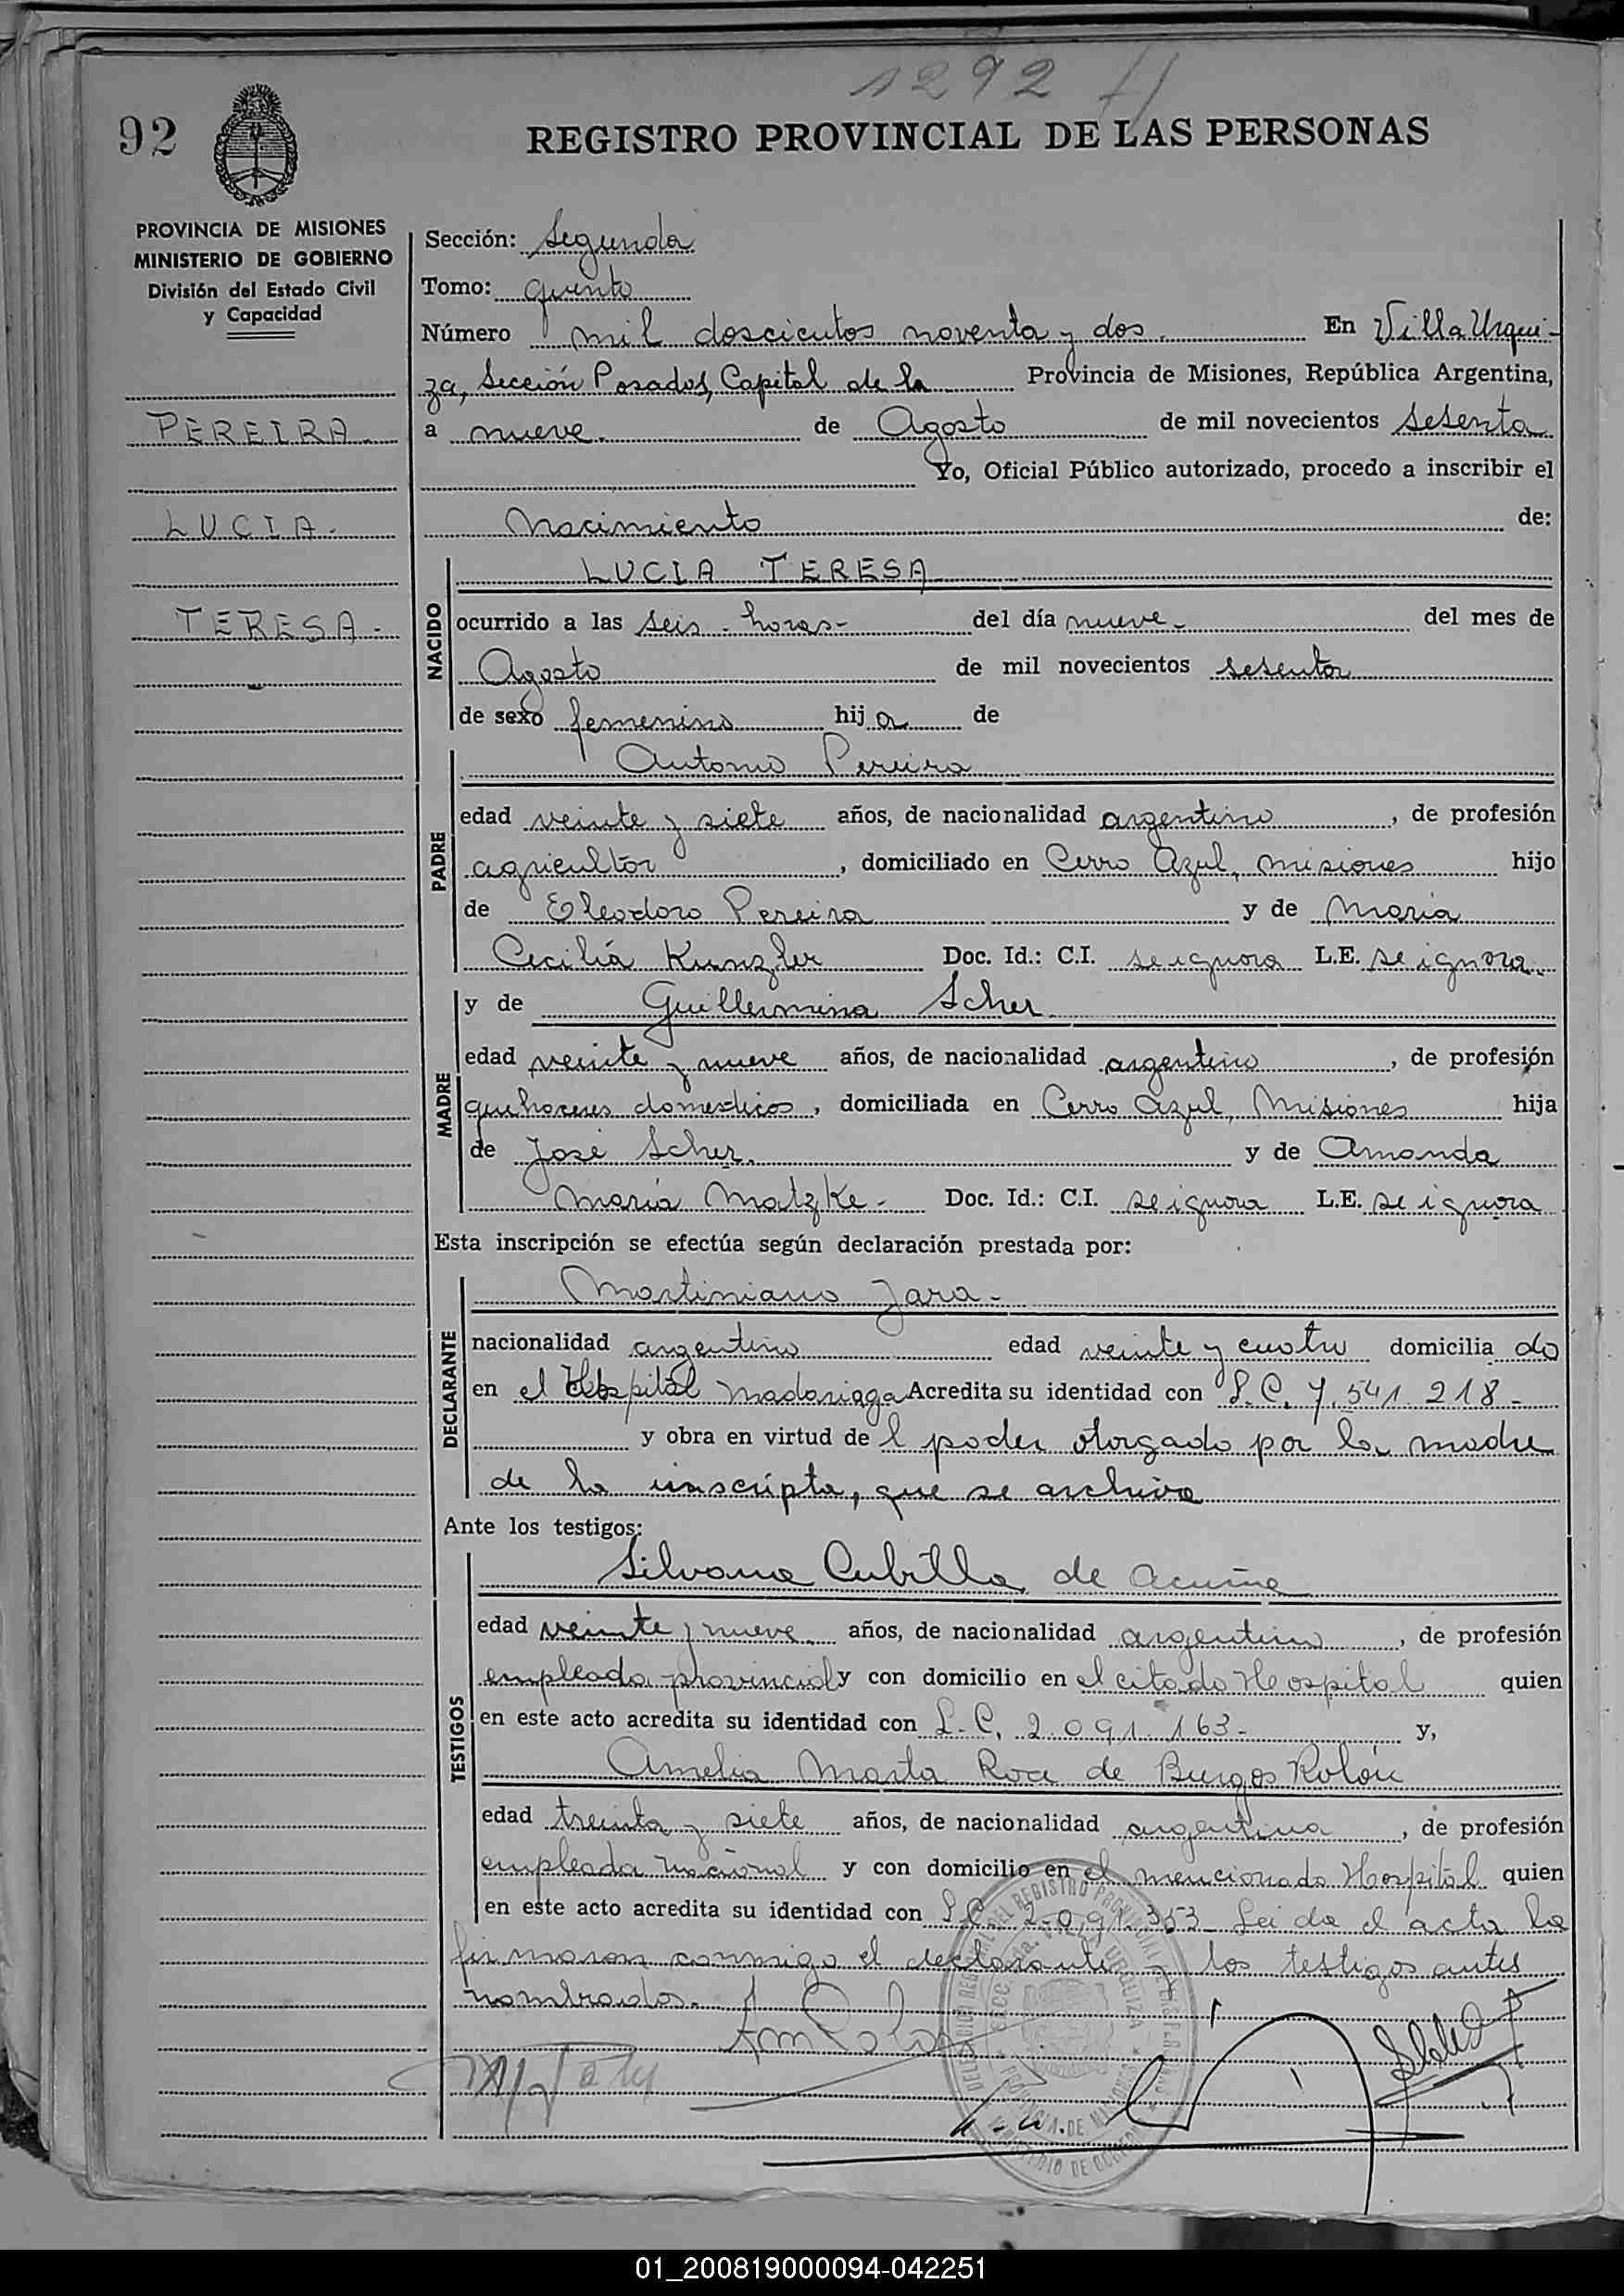 1292
92
REGISTRO PROVINCIAL DE LAS PERSONAS
PROVINCIA DE MISIONES
MINISTERIO DE GOBIERNO
División del Estado Civil
y Capacidad
PEREIRA
LUCIA.
TERESA.-
Sección: Segunda
Tomo: quinto
Número mil doscientos noventa y dos. En Villa Urqui-
za, Sección Posadas, Capital de la Provincia de Misiones, República Argentina,
a nueve. de Agosto de mil novecientos sesenta
Yo, Oficial Público autorizado, procedo a inscribir el
Nacimiento de:
NACIDO
LUCIA TERESA
ocurrido a las seis - horas- del día nueve- del mes de
Agosto de mil novecientos sesenta
de sexo femenino hija de
PADRE
Antonio Pereira
edad veinte y siete años, de nacionalidad argentino, de profesión
agricultor, domiciliado en Cerro Azul, misiones hijo
de Eleodoro Pereira y de Maria
Cecilia Kunzler Doc. Id.: C.I. se ignora L.E. se ignora.
MADRE
y de Guillermina Scher
edad veinte y nueve años, de nacionalidad argentino, de profesión
quehaceres domesticos, domiciliada en Cerro Azul, Misiones hija
de José Scher. y de Amanda
Maria Matzke- Doc. Id.: C.I. se ignora L.E. se ignora
Esta inscripción se efectúa según declaración prestada por:
DECLARANTE
Martiniano Jara-
nacionalidad argentino edad veinte y cuatro domiciliado
en el Hospital Madariaga Acredita su identidad con 7.541.218-
y obra en virtud del poder otorgado por la madre
de la inscripta, que se archiva
Ante los testigos:
TESTIGOS
Silvana Cubilla de Acuña
edad veinte y nueve años, de nacionalidad argentina, de profesión
empleada provincial y con domicilio en el citado Hospital quien
en este acto acredita su identidad con L.C. 2.091.163- y,
Amelia Marta Roa de Burgos Rolón
edad treinta y siete años, de nacionalidad argentina, de profesión
empleada nacional y con domicilio en el mencionado Hospital quien
en este acto acredita su identidad con L.C. 2.091.353- Leida el acta la
firmaron conmigo el declarante y los testigos antes
nombrados.
01_200819000094-042251